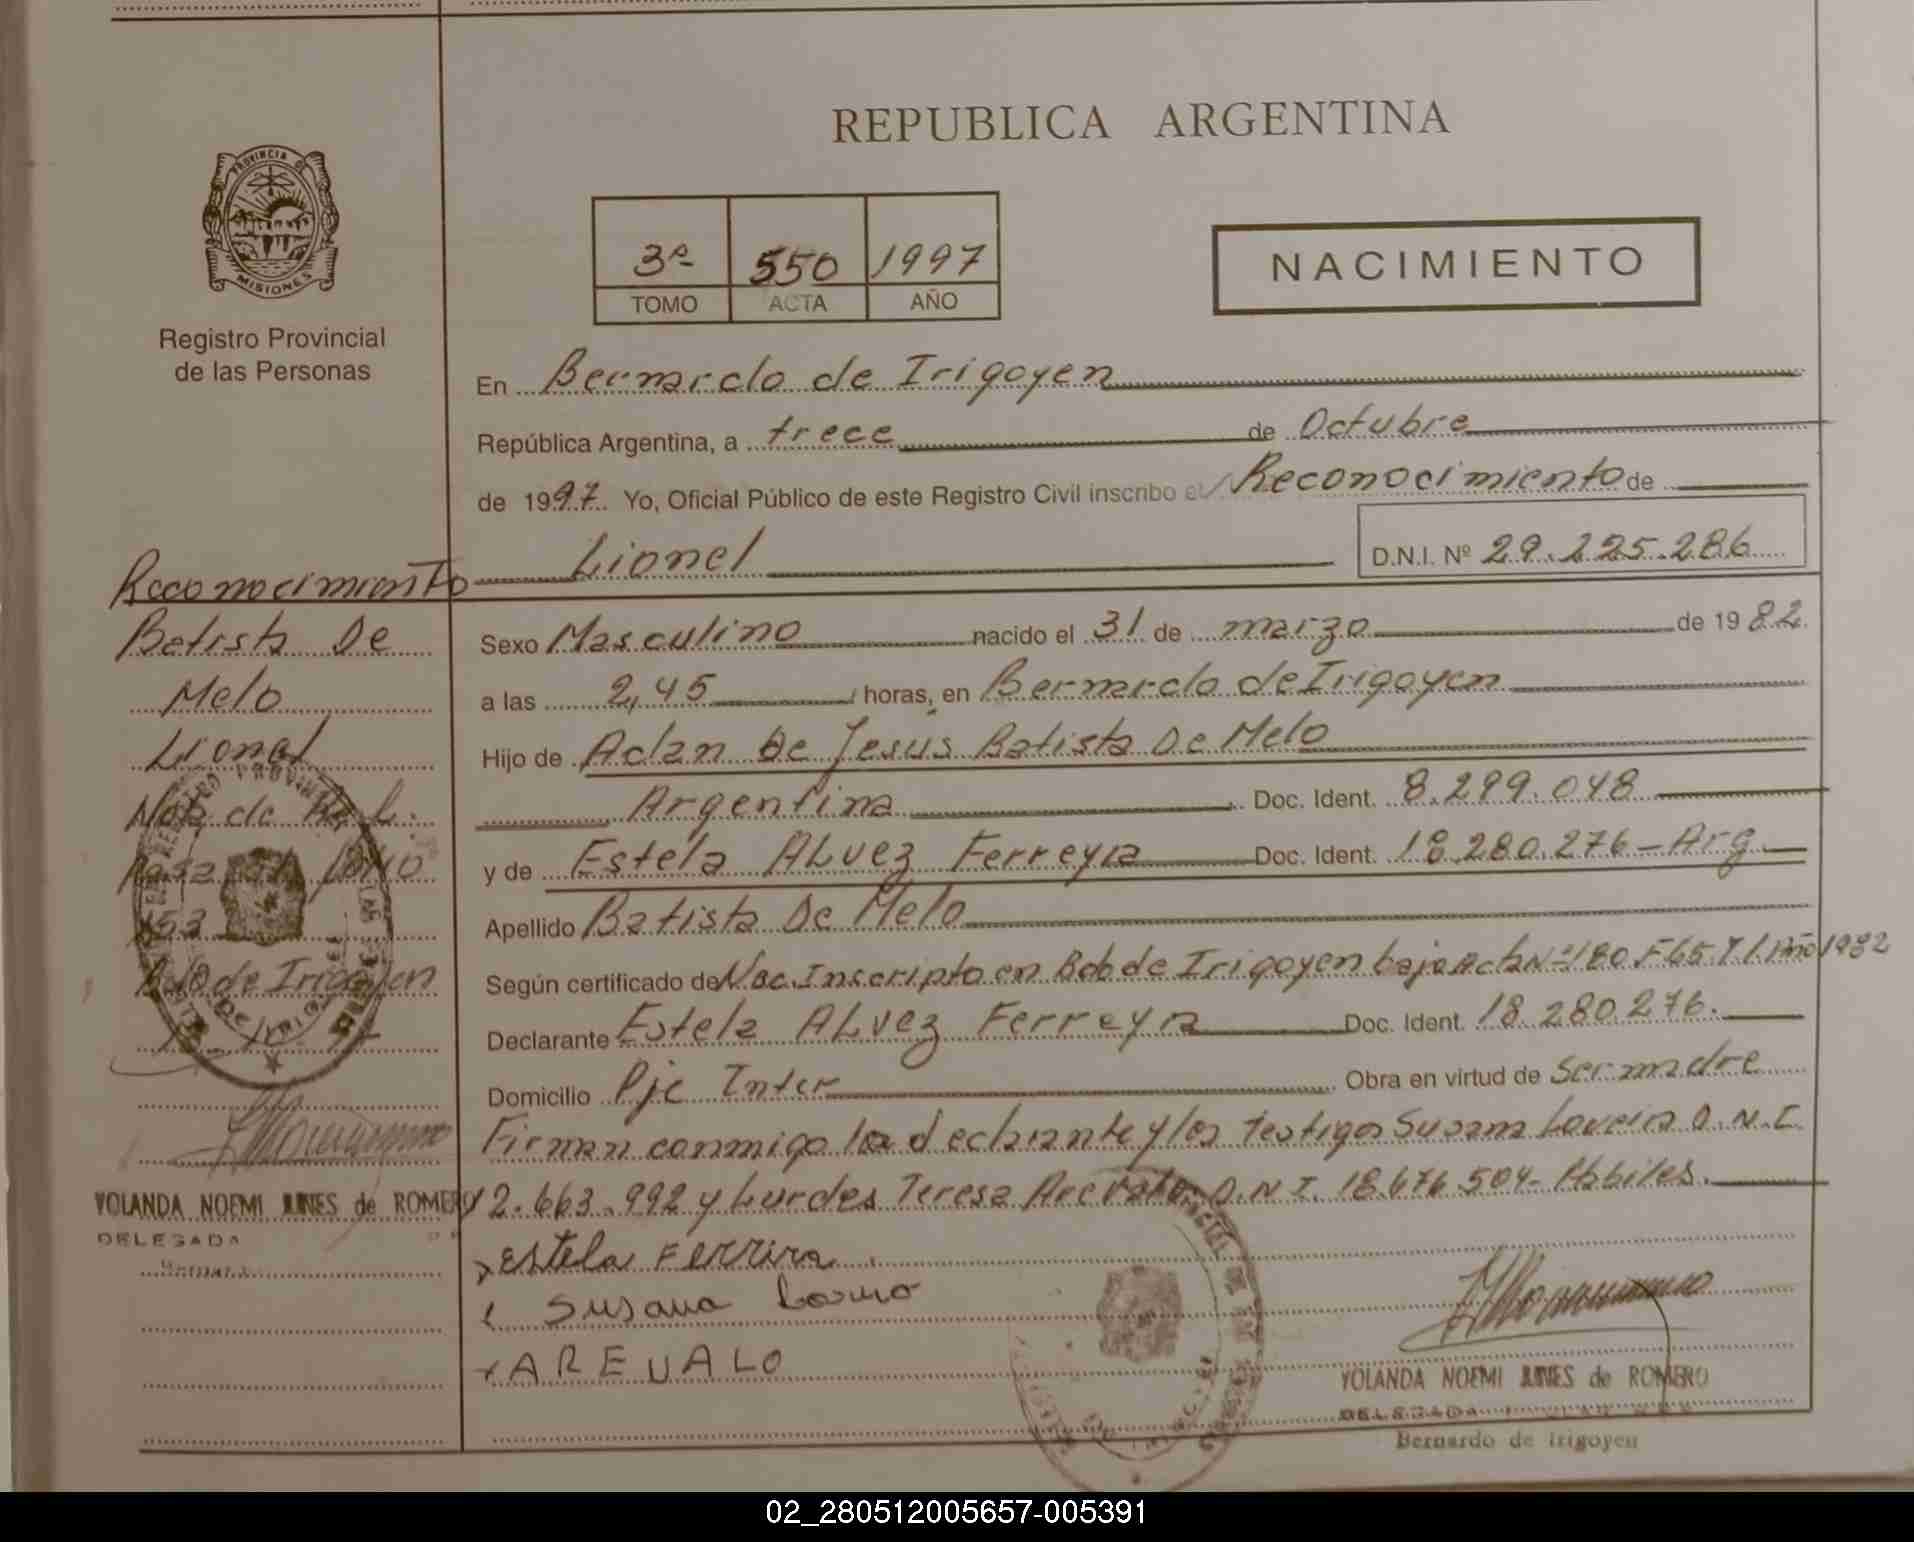 REPUBLICA ARGENTINA
PROVINCIA DE
MISIONES
Registro Provincial
de las Personas
3ª 550 1997
TOMO ACTA AÑO
NACIMIENTO
En Bernardo de Irigoyen
República Argentina, a trece de Octubre
de 1997. Yo, Oficial Público de este Registro Civil inscribo el Reconocimiento de
Lionel D.N.I. Nº 29.225.286
Reconocimiento
Batista De
Melo
Lionel
Nota de
de Irigoyen
Sexo Masculino nacido el 31 de marzo de 1982.
a las 2,45 horas, en Bernardo de Irigoyen
Hijo de Adan De Jesus Batista De Melo
Argentina Doc. Ident. 8.299.048
y de Estela ALvez Ferreyra Doc. Ident. 18.280.276 - Arg.
Apellido Batista De Melo
Según certificado de Nac. Inscripto en Bdo de Irigoyen bajo Acta Nº 180 F 65 T 1 Año 1982
Declarante Estela ALvez Ferreyra Doc. Ident. 18.280.276.
Domicilio Pje Inter Obra en virtud de ser madre
Firman conmigo la declarante y los testigos Susana D.N.I.
12.663.992 y Lurdes Teresa Arevalo D.N.I. 18.676.504- Habiles.
Estela Ferrira
Susana
AREVALO
YOLANDA NOEMI JUNES de ROMERO
DELEGADA
YOLANDA NOEMI JUNES de ROMERO
DELEGADA
Bernardo de Irigoyen
02_280512005657-005391